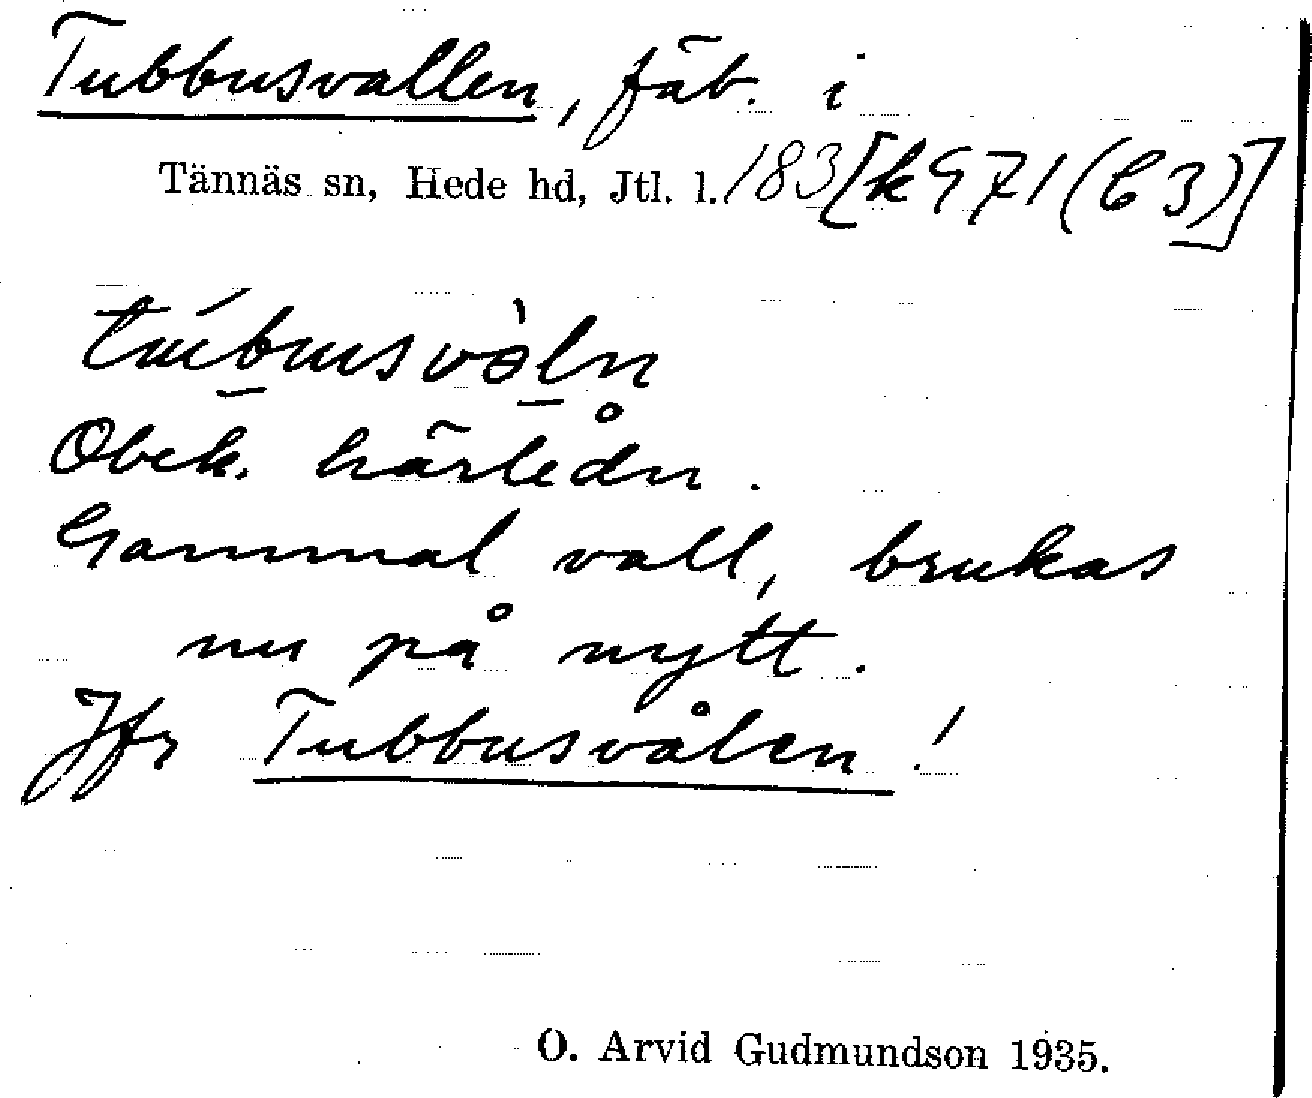 Tubbusvallen, fäb. i
Tännäs sn, Hede hd, Jtl. l. 183 [k 971 (C 3)]
Obek. härledn.
Gammal vall, brukas
nu på nytt.
Jfr Tubbusvålen!
O. Arvid Gudmundson 1935.